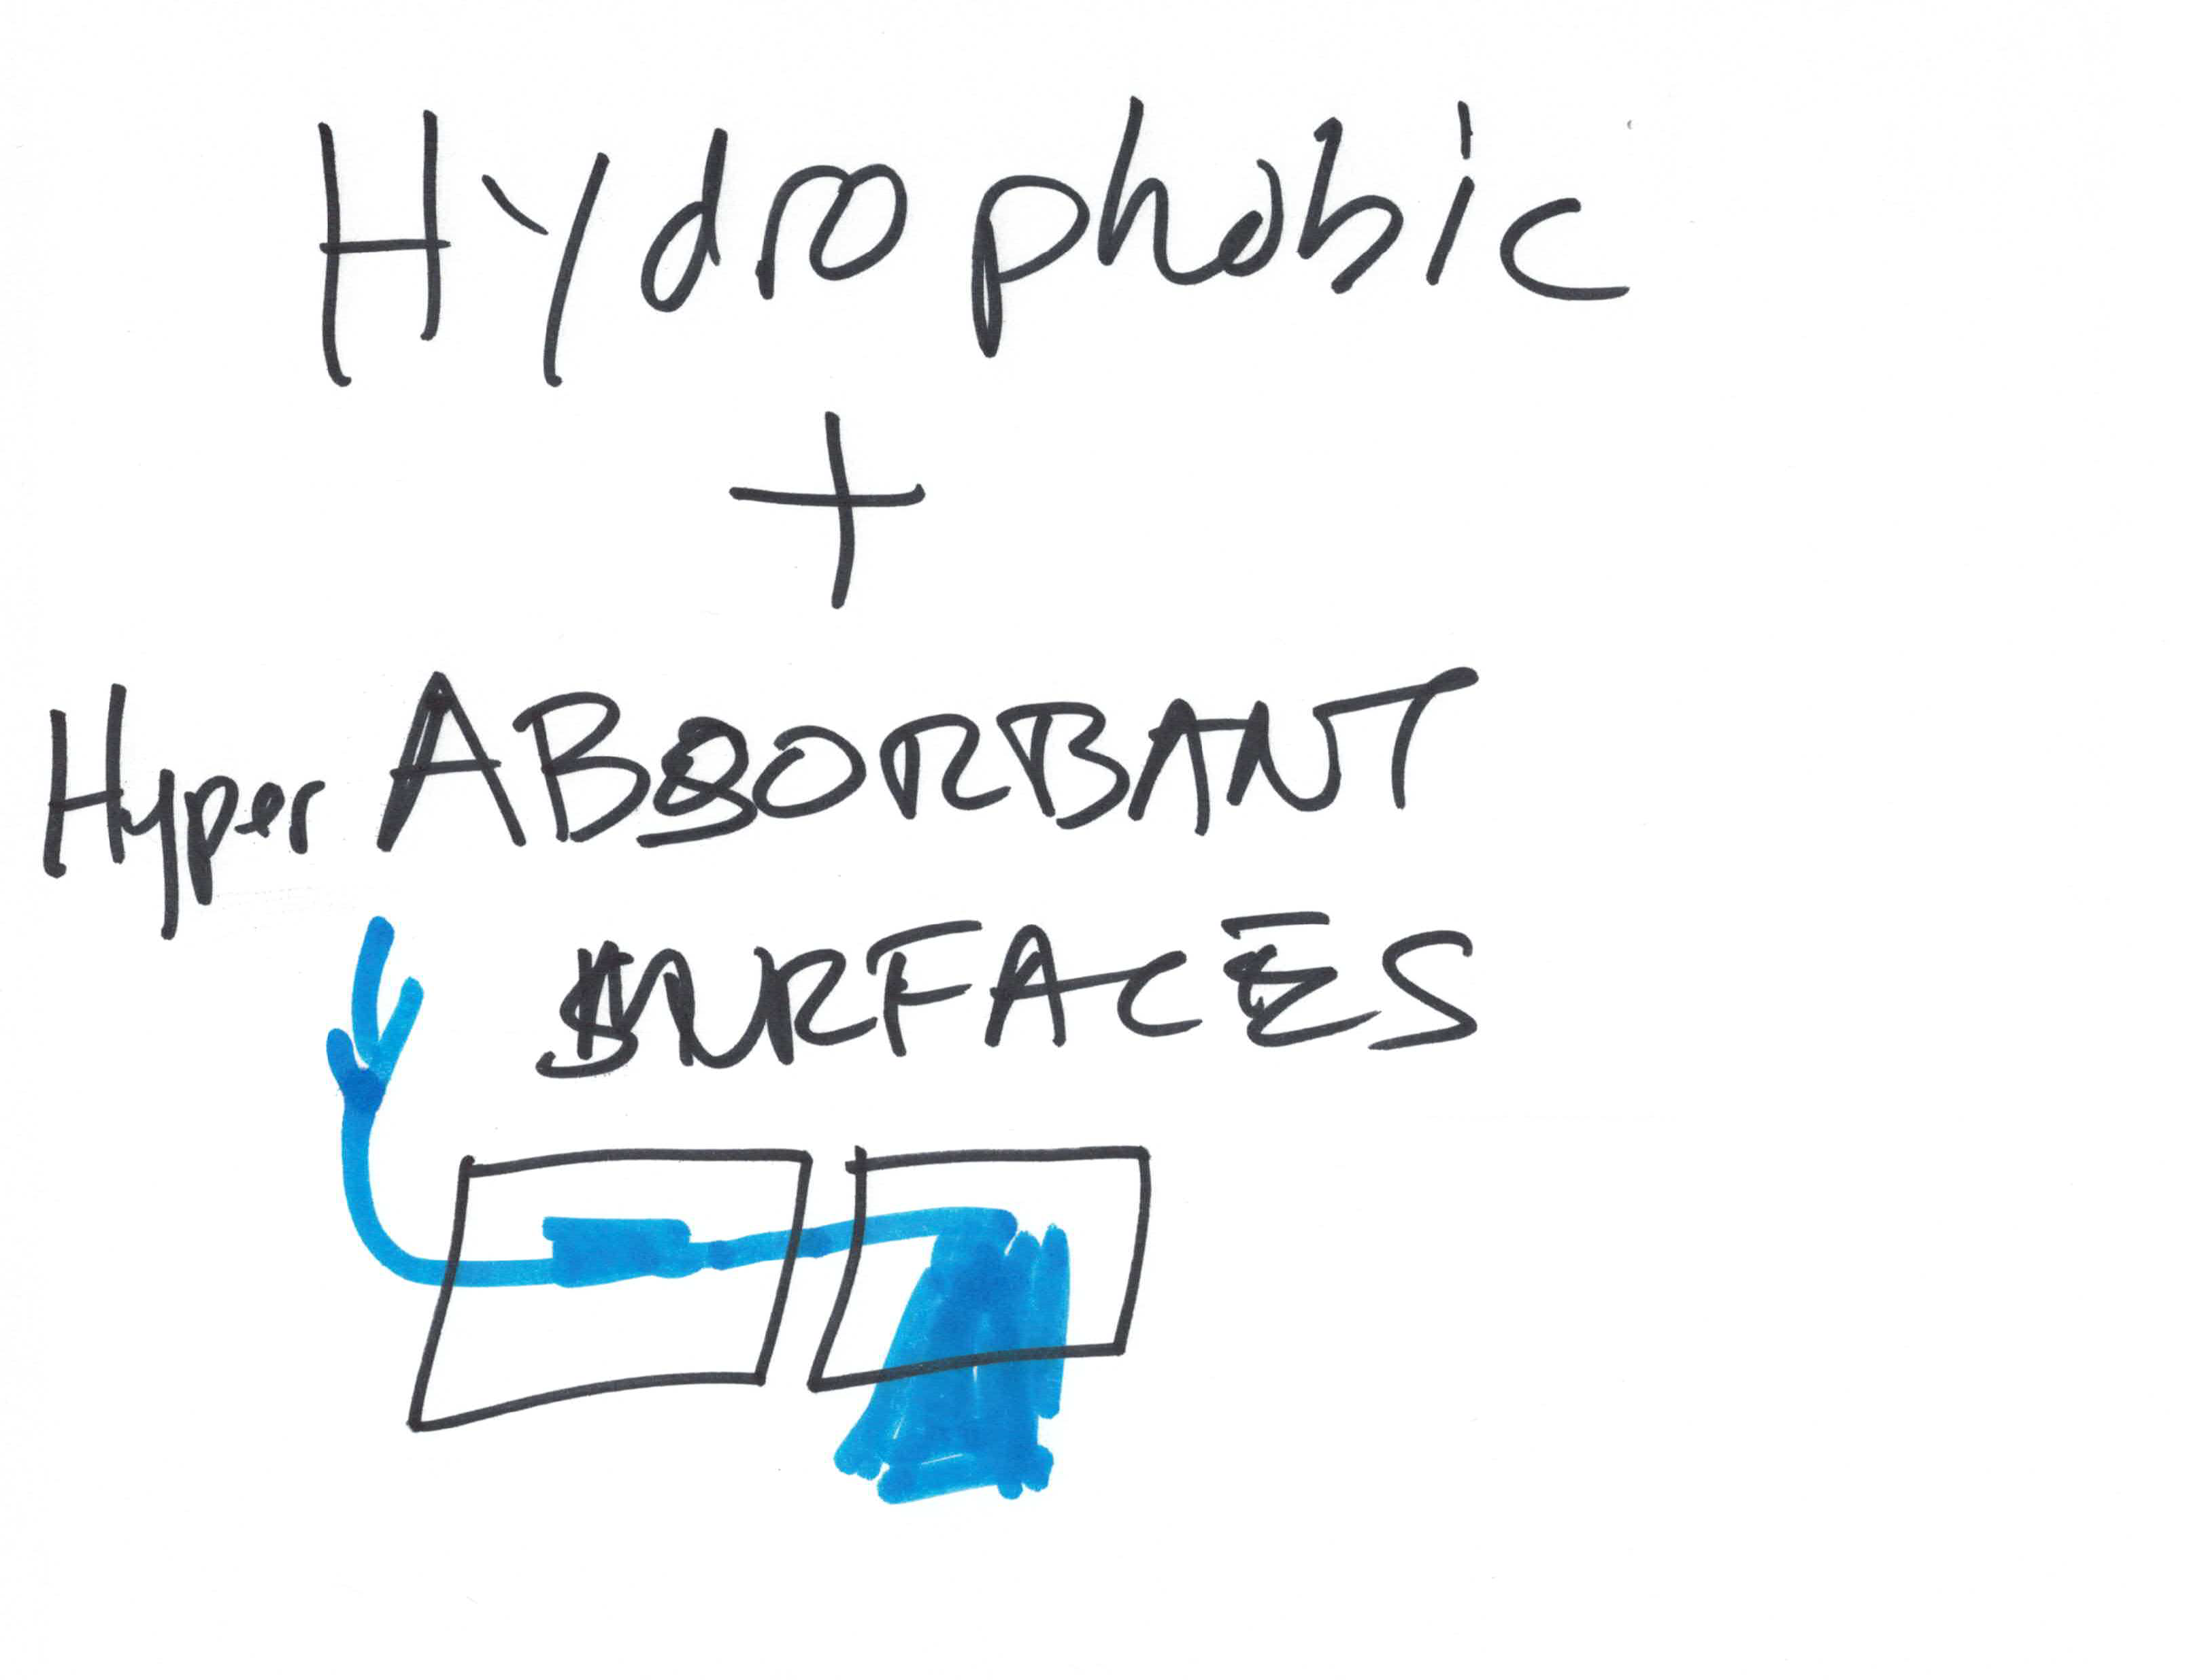 Hydrophobic
+
Hyper ABSORBANT
SURFACES